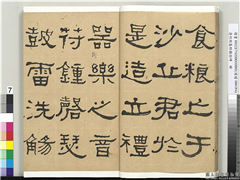 食糧亡于
沙丘君於
是造立禮
器樂之音
符鍾磬瑟
鼓雷洗觴
7